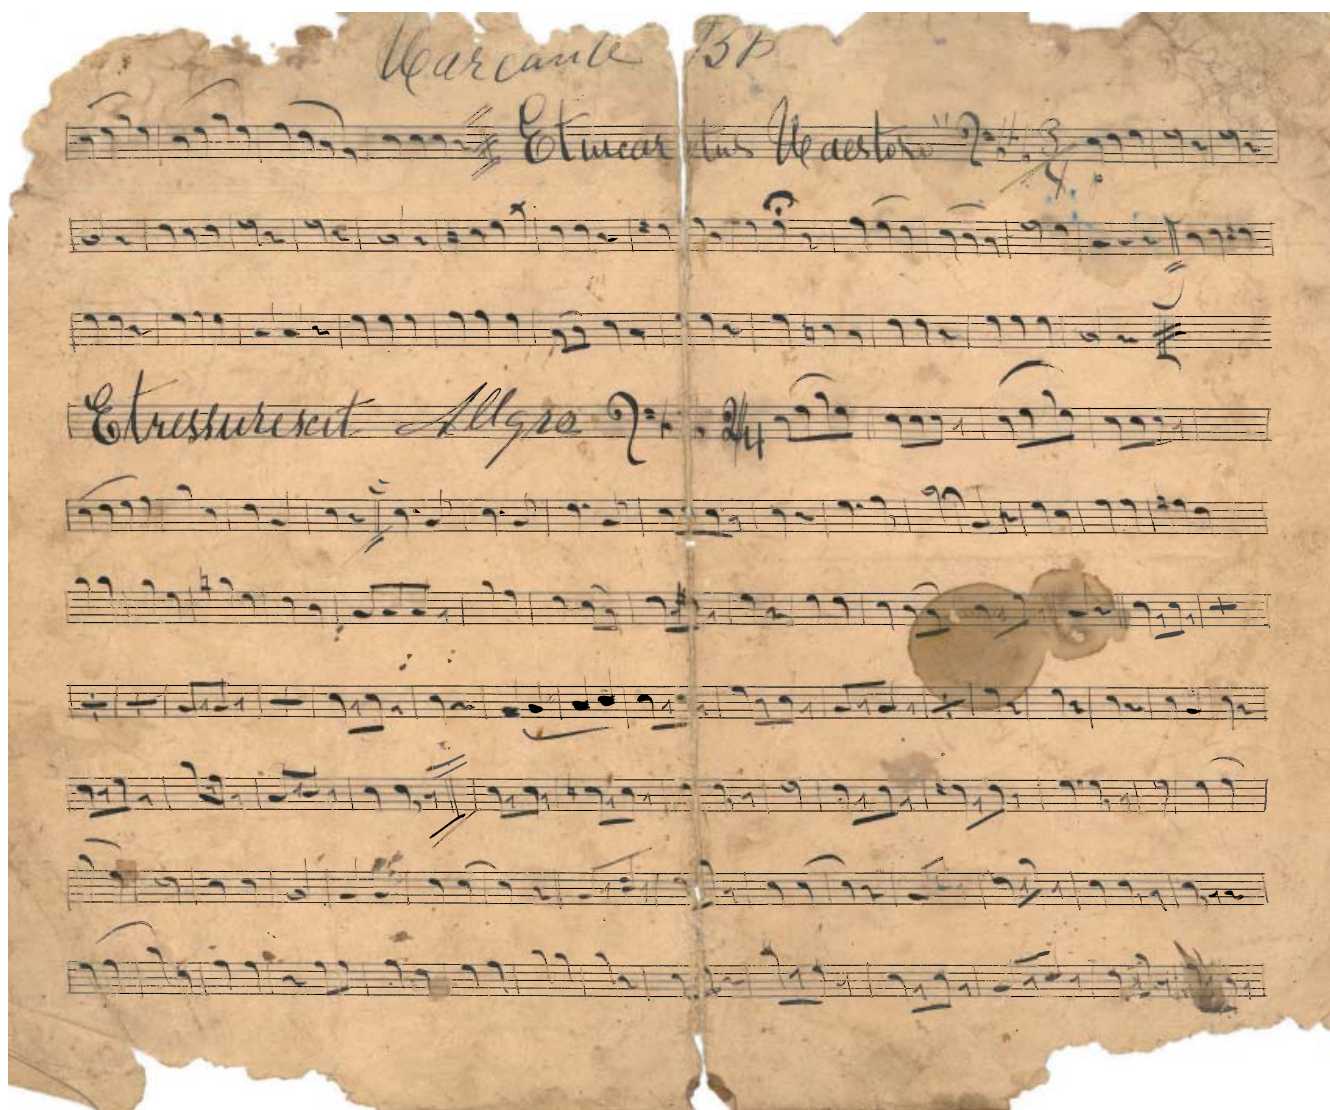 Marcante BP
Etincarnatus Maestoso 3/4
Etressurescit Allgro 2/4